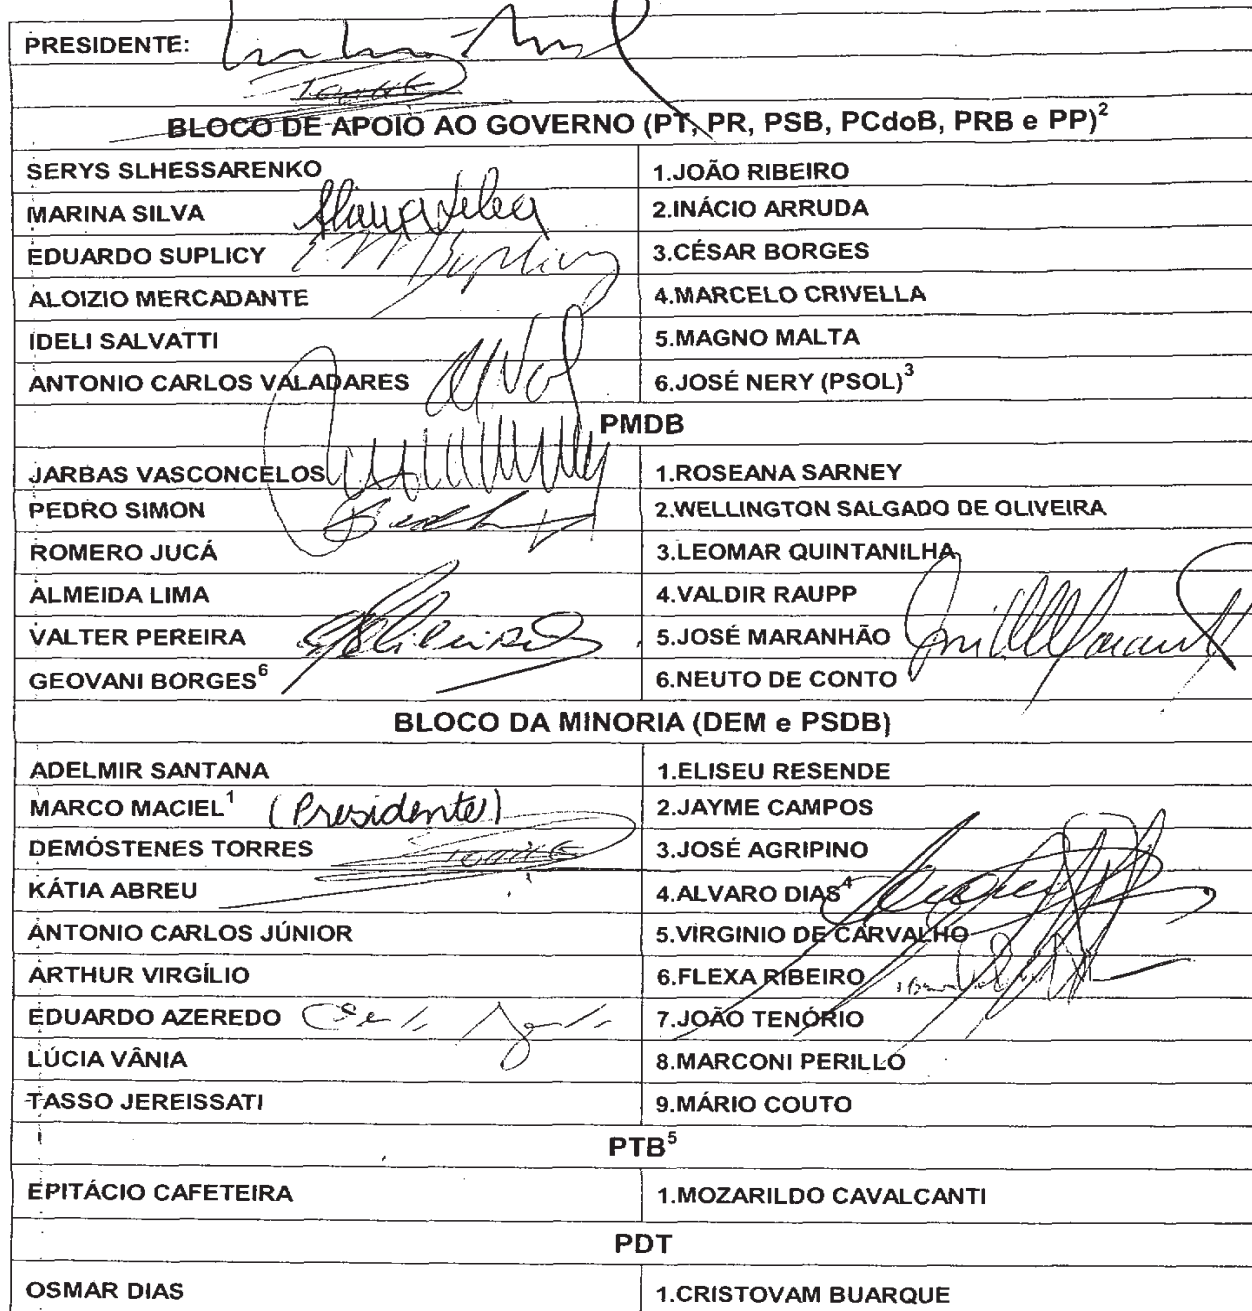 PRESIDENTE:
BLOCO DE APOIO AO GOVERNO (PT, PR, PSB, PCdoB, PRB e PP)²
SERYS SLHESSARENKO 1.JOÃO RIBEIRO
MARINA SILVA 2.INÁCIO ARRUDA
EDUARDO SUPLICY 3.CÉSAR BORGES
ALOIZIO MERCADANTE 4.MARCELO CRIVELLA
IDELI SALVATTI 5.MAGNO MALTA
ANTONIO CARLOS VALADARES 6.JOSÉ NERY (PSOL)³
PMDB
JARBAS VASCONCELOS 1.ROSEANA SARNEY
PEDRO SIMON 2.WELLINGTON SALGADO DE OLIVEIRA
ROMERO JUCÁ 3.LEOMAR QUINTANILHA
ALMEIDA LIMA 4.VALDIR RAUPP
VALTER PEREIRA 5.JOSÉ MARANHÃO
GEOVANI BORGES⁶ 6.NEUTO DE CONTO
BLOCO DA MINORIA (DEM e PSDB)
ADELMIR SANTANA 1.ELISEU RESENDE
MARCO MACIEL¹ (Presidente) 2.JAYME CAMPOS
DEMÓSTENES TORRES 3.JOSÉ AGRIPINO
KÁTIA ABREU 4.ALVARO DIAS⁴
ANTONIO CARLOS JÚNIOR 5.VIRGINIO DE CARVALHO
ARTHUR VIRGÍLIO 6.FLEXA RIBEIRO
EDUARDO AZEREDO 7.JOÃO TENÓRIO
LÚCIA VÂNIA 8.MARCONI PERILLO
TASSO JEREISSATI 9.MÁRIO COUTO
PTB⁵
EPITÁCIO CAFETEIRA 1.MOZARILDO CAVALCANTI
PDT
OSMAR DIAS 1.CRISTOVAM BUARQUE